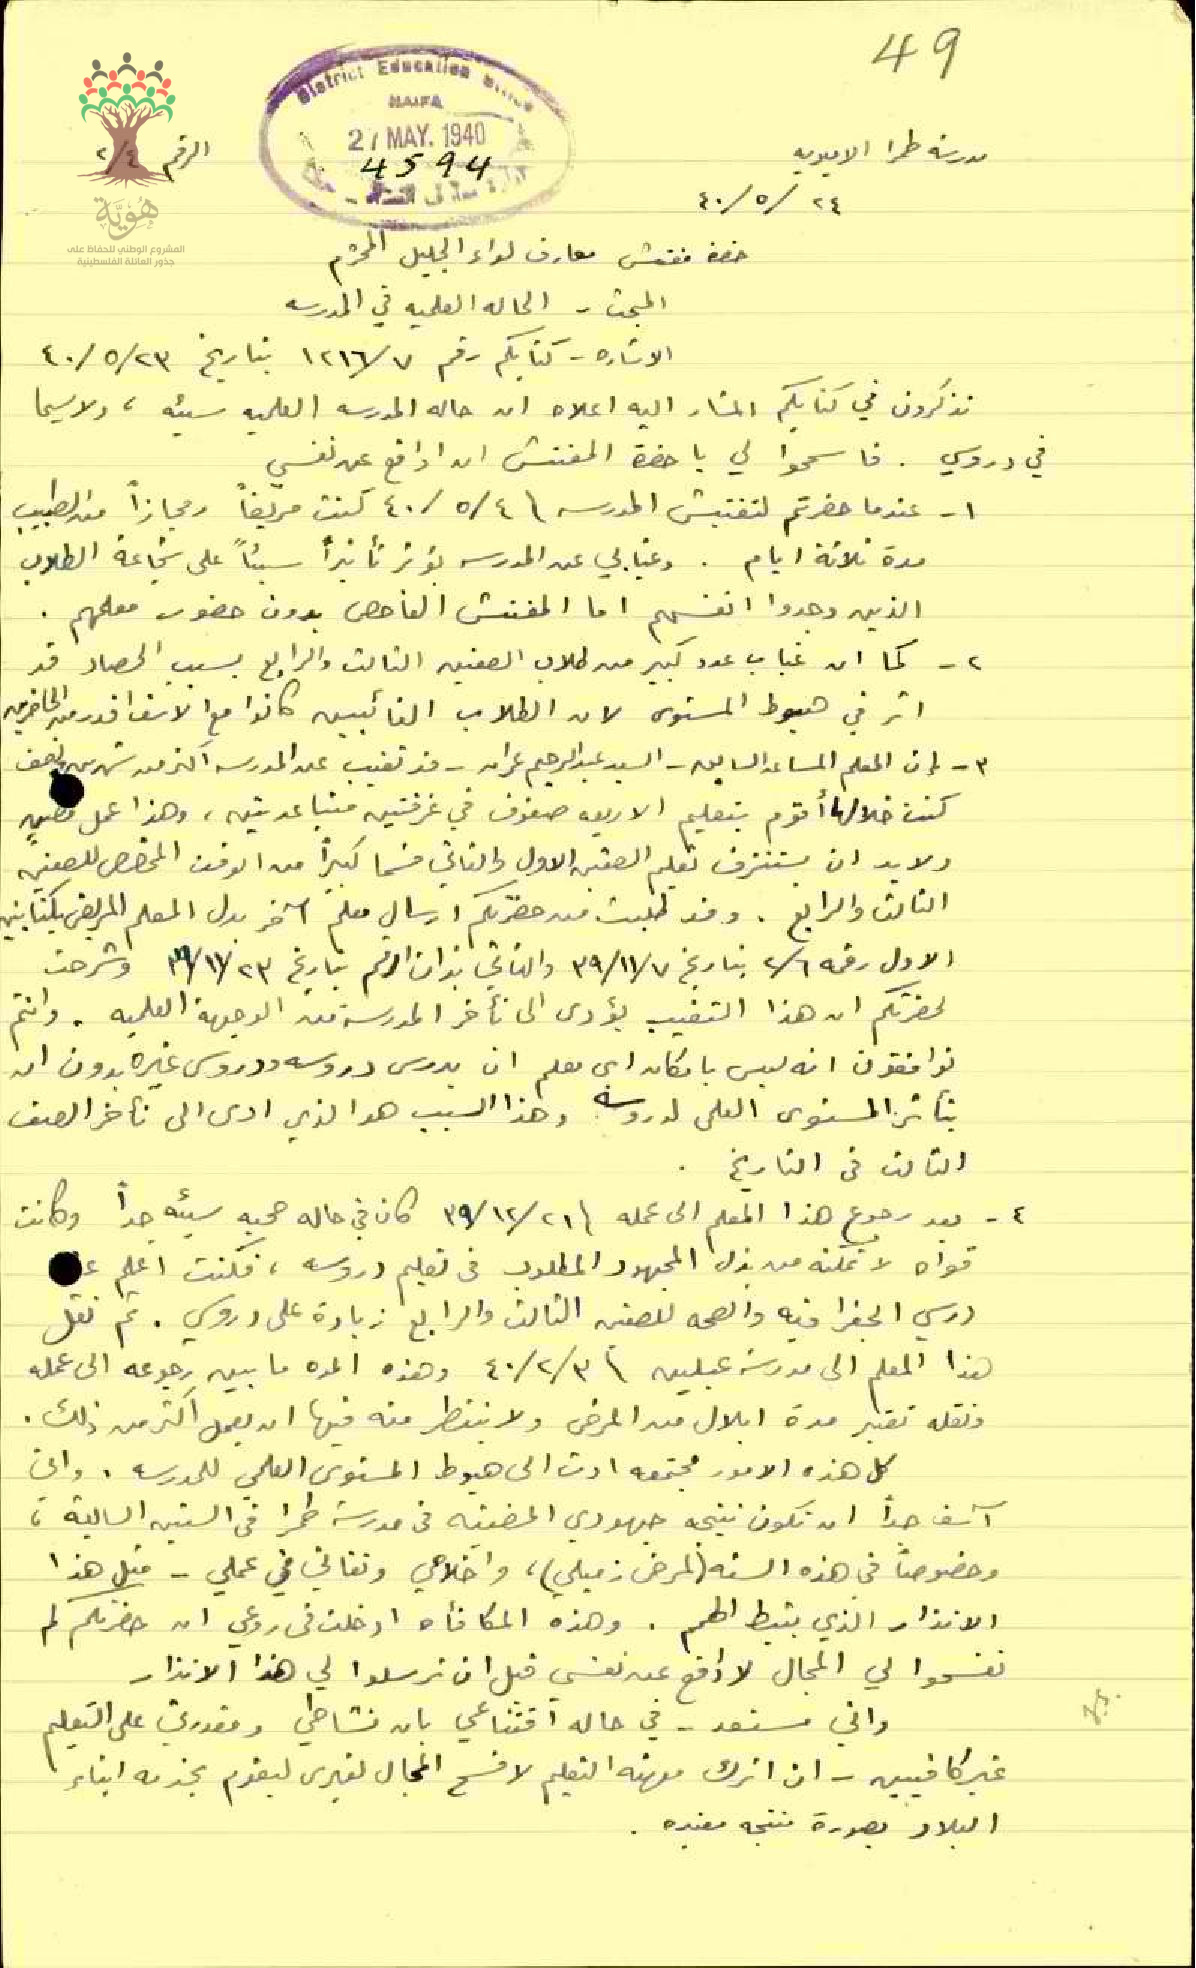 49
District Education Office
HAIFA
27 MAY. 1940
4594
هُوِيَّة
المشروع الوطني للحفاظ على
جذور العائلة الفلسطينية
مدرسة طمرا الاميرية
الرقم ٢/٤
٢٤/ ٥/ ٤٠
حضرة مفتش معارف لواء الجليل المحترم
المبحث - الحاله العلميه في المدرسه
الاشاره - كتابكم رقم ١٢١٦/٧ بتاريخ ٢٣/ ٥/ ٤٠
تذكرون في كتابكم المشار اليه اعلاه ان حاله المدرسه العلميه سيئه ، ولا سيما
في دروسي . فاسمحوا لي يا حضرة المفتش ان ادافع عن نفسي
١- عندما حضرتم لتفتيش المدرسه ٤/ ٥/ ٤٠ كنت مريضاً ومجازاً من الطبيب
مدة ثلاثة ايام . وغيابي عن المدرسه يؤثر تأثيراً سيئاً على شجاعة الطلاب
الذين وجدوا انفسهم امام المفتش الفاحص بدون حضور معلمهم .
٢- كما ان غياب عدد كبير من طلاب الصفين الثالث والرابع بسبب الحصاد قد
اثر في هبوط المستوى لان الطلاب الغائبين كانوا مع الاسف اقدر من الحاضرين
٣- إن المعلم المساعد السابق - السيد عبد الرحيم عمران - قد تغيب عن المدرسه اكثر من شهرين ونصف
كنت خلالها أقوم بتعليم الاربعه صفوف في غرفتين متباعدتين ، وهذا عمل
ولا بد ان يستنزف تعليم الصفين الاول والثاني قسما كبيراً من الوقت المخصص للصفين
الثالث والرابع . وقد طلبت من حضرتكم ارسال معلم آخر بدل المعلم المريض بكتابين
الاول رقمه ٢/٦ بتاريخ ٧/ ١١/ ٣٩ والثاني بذات الرقم بتاريخ ٢٣/ ١١/ ٣٩ وشرحت
لحضرتكم ان هذا التغيب يؤدى الى تأخر المدرسة من الوجهة العلميه . وانتم
توافقون انه ليس بامكان اى معلم ان يدرس دروسه ودروس غيره بدون ان
يتأثر المستوى العلمى لدروسه وهذا السبب هو الذي ادى الى تأخر الصف
الثالث فى التاريخ .
٤- بعد رجوع هذا المعلم الى عمله ٢١/ ١٢/ ٣٩ كان في حاله صحيه سيئه جداً وكانت
قواه لا تمكنه من بذل المجهود المطلوب فى تعليم دروسه ، فكنت اعلم عنه
درسي الجغرافيه والصحه للصفين الثالث والرابع زيادة على دروسي . ثم نقل
هذا المعلم الى مدرسة عبلين ٣/ ٢/ ٤٠ وهذه المده ما بين رجوعه الى عمله
ونقله تعتبر مدة ابلال من المرض ولا ينتظر منه فيها ان يعمل اكثر من ذلك .
كل هذه الامور مجتمعه ادت الى هبوط المستوى العلمي للمدرسه . واني
آسف جداً ان تكون نتيجه جهودي المضنيه فى مدرسة طمرا فى السنين السالفة ،
وخصوصاً فى هذه السنه (لمرض زميلي) ، واخلاصي وتفاني في عملي - مثل هذا
الانذار الذي يثبط الهمم . وهذه المكافأه ادخلت فى روعي ان حضرتكم لم
تفسحوا لي المجال لادافع عن نفسي قبل ان ترسلوا لي هذا الانذار
واني مستعد - في حاله اقتناعي بان نشاطي ومقدرتي على التعليم
غير كافيين - ان اترك مهنه التعليم لافسح المجال لغيرى ليقوم بخدمه ابناء
البلاد بصورة منتجه مفيده .